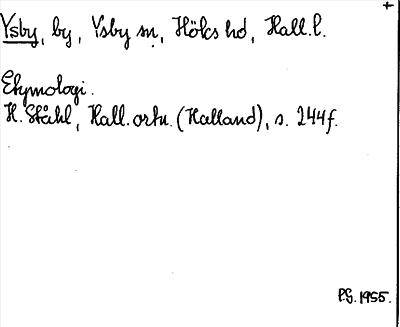 +
Ysby, by, Ysby sn, Höks hd, Hall. l.
Etymologi.
H. Ståhl, Hall. ortn. (Halland), s. 244f.
P.G. 1955.